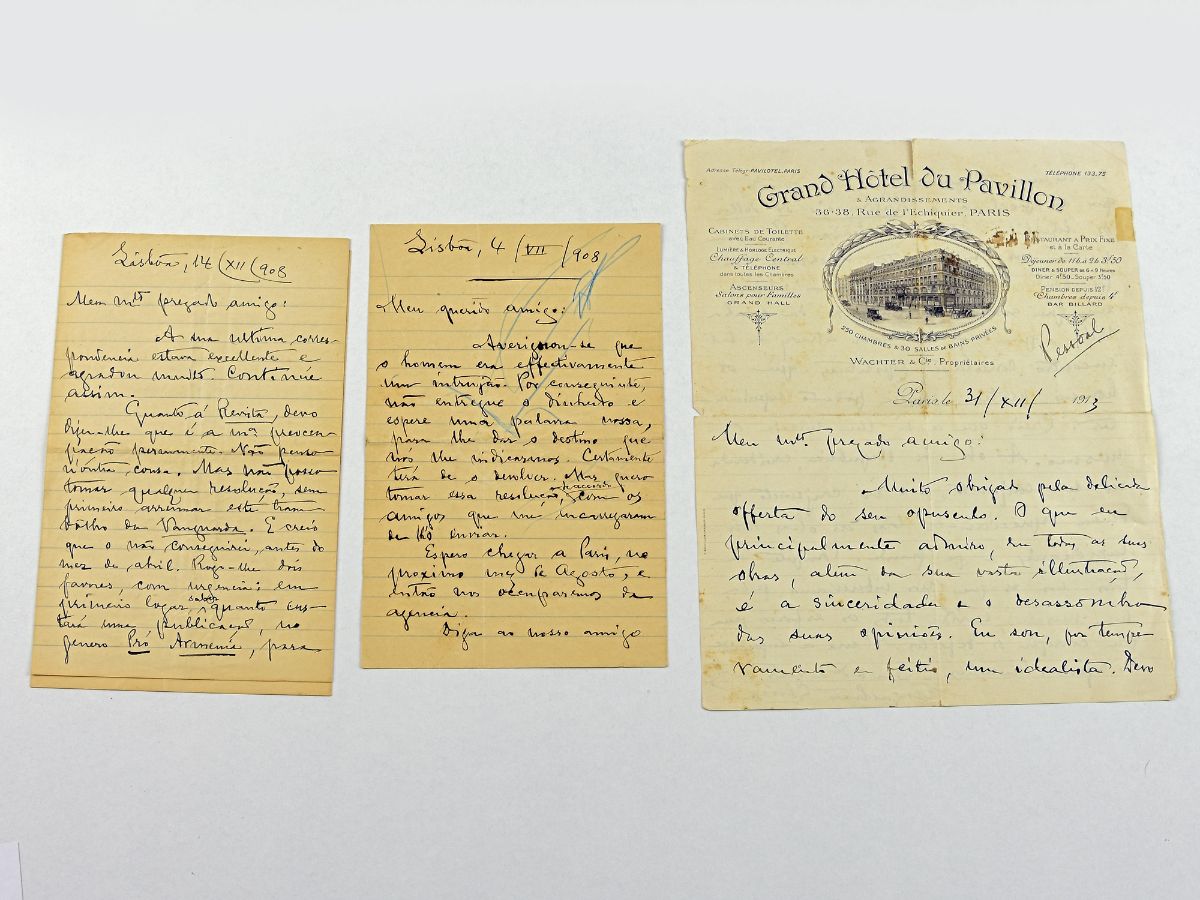 Lisboa, 14/XII/908
Meu mto prezado amigo:
A sua ultima corres-
pondencia estava excellente e
agradou muito. Continúe
assim.
Quanto á Revista, devo
dizer-lhe que é a ma preoccu-
pação permanente. Não penso
n'outra cousa. Mas não posso
tomar qualquer resolução, sem
primeiro arrumar este tram-
bolho da Vanguarda. E creio
que o não conseguirei, antes do
mez de abril. Rogo-lhe dois
favores, com urgencia: em
primeiro logar, saber quanto cus-
tará uma publicação, no
genero Pró Armenia, para
Lisboa, 4/VII/908
Meu querido amigo:
Averiguou-se que
o homem era effectivamente
um intrujão. Por conseguinte,
não entregue o dinheiro e
espere uma palavra nossa,
para lhe dar o destino que
nós lhe indicarmos. Certamente
terá de o devolver. Mas quero
tomar essa resolução, d'accordo com os
amigos que me encarregaram
de lh'o enviar.
Espero chegar a Paris, no
proximo mez de Agosto, e
então nos occuparemos da
agencia.
Diga ao nosso amigo
Adresse Télégr: PAVILOTEL, PARIS
TÉLÉPHONE 133.75
Grand Hôtel du Pavillon
& AGRANDISSEMENTS
36-38, Rue de l'Echiquier, PARIS
CABINETS DE TOILETTE
avec Eau Courante
LUMIÈRE & HORLOGE ELECTRIQUE
Chauffage Central
& TÉLÉPHONE
dans toutes les Chambres
ASCENSEURS
Salons pour Familles
GRAND HALL
RESTAURANT A PRIX FIXE
et à la Carte
Déjeuner de 11h à 2h 3f50
DINER & SOUPER de 6 à 9 heures
Diner 4f50 _ Souper 3f50
PENSION DEPUIS 12f
Chambres depuis 4f
BAR BILLARD
250 CHAMBRES & 30 SALLES DE BAINS PRIVÉES
WACHTER & Cie Propriétaires
Pessoal
Paris le 31/XII/1913
Meu mto prezado amigo:
Muito obrigado pela deliciosa
offerta do seu opusculo. O que eu
principalmente admiro, em todas as suas
obras, além da sua vasta illustração,
é a sinceridade e o desassombro
das suas opiniões. Eu sou, por tempe-
ramento e feitio, um idealista. Devo